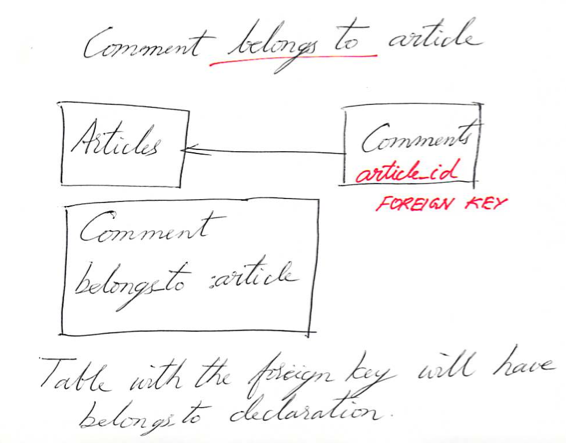 Comment belongs to article
Articles
Comments
article_id
FOREIGN KEY
Comment
belongs_to :article
Table with the foreign key will have
belongs to declaration.